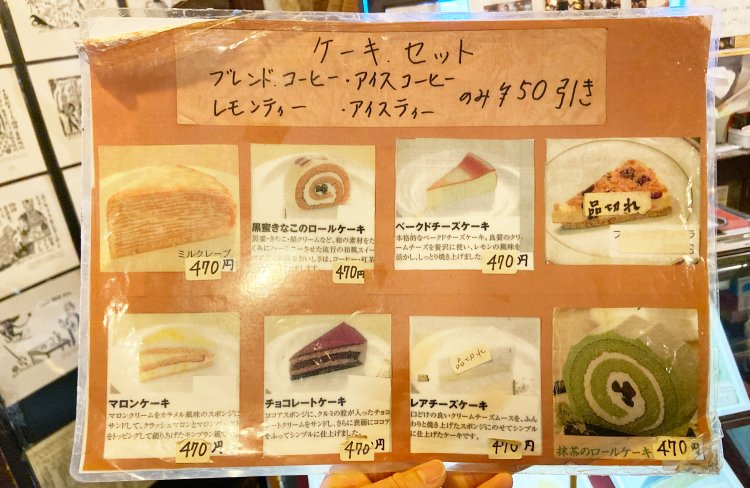 ケーキ.セット
ブレンド.コーヒー・アイスコーヒー
レモンティー ・アイスティー のみ¥50引き
ミルクレープ
470円
黒蜜きなこのロールケーキ
黒蜜・きなこ・餡クリームなど、和の素材をた
470円
ベークドチーズケーキ
本格的なベークドチーズケーキ。良質のクリ
ームチーズを贅沢に使い、レモンの風味を
活かし、しっとり焼き上げました。
470円
品切れ
マロンケーキ
マロンクリームをカラメル風味のスポンジに
サンドして、クラッシュマロンとマロン
トッピングして創りあげたモンブラン風
470円
チョコレートケーキ
ココアスポンジに、クルミの粒が入ったチョコ
レートクリームをサンド、さらに表面にココア
をふってシンプルに仕上げました。
470円
品切れ
レアチーズケーキ
口どけの良いクリームチーズムースを、ふん
わりと焼き上げたスポンジにのせてシンプル
に仕上げたケーキです。
470円
抹茶のロールケーキ
470円